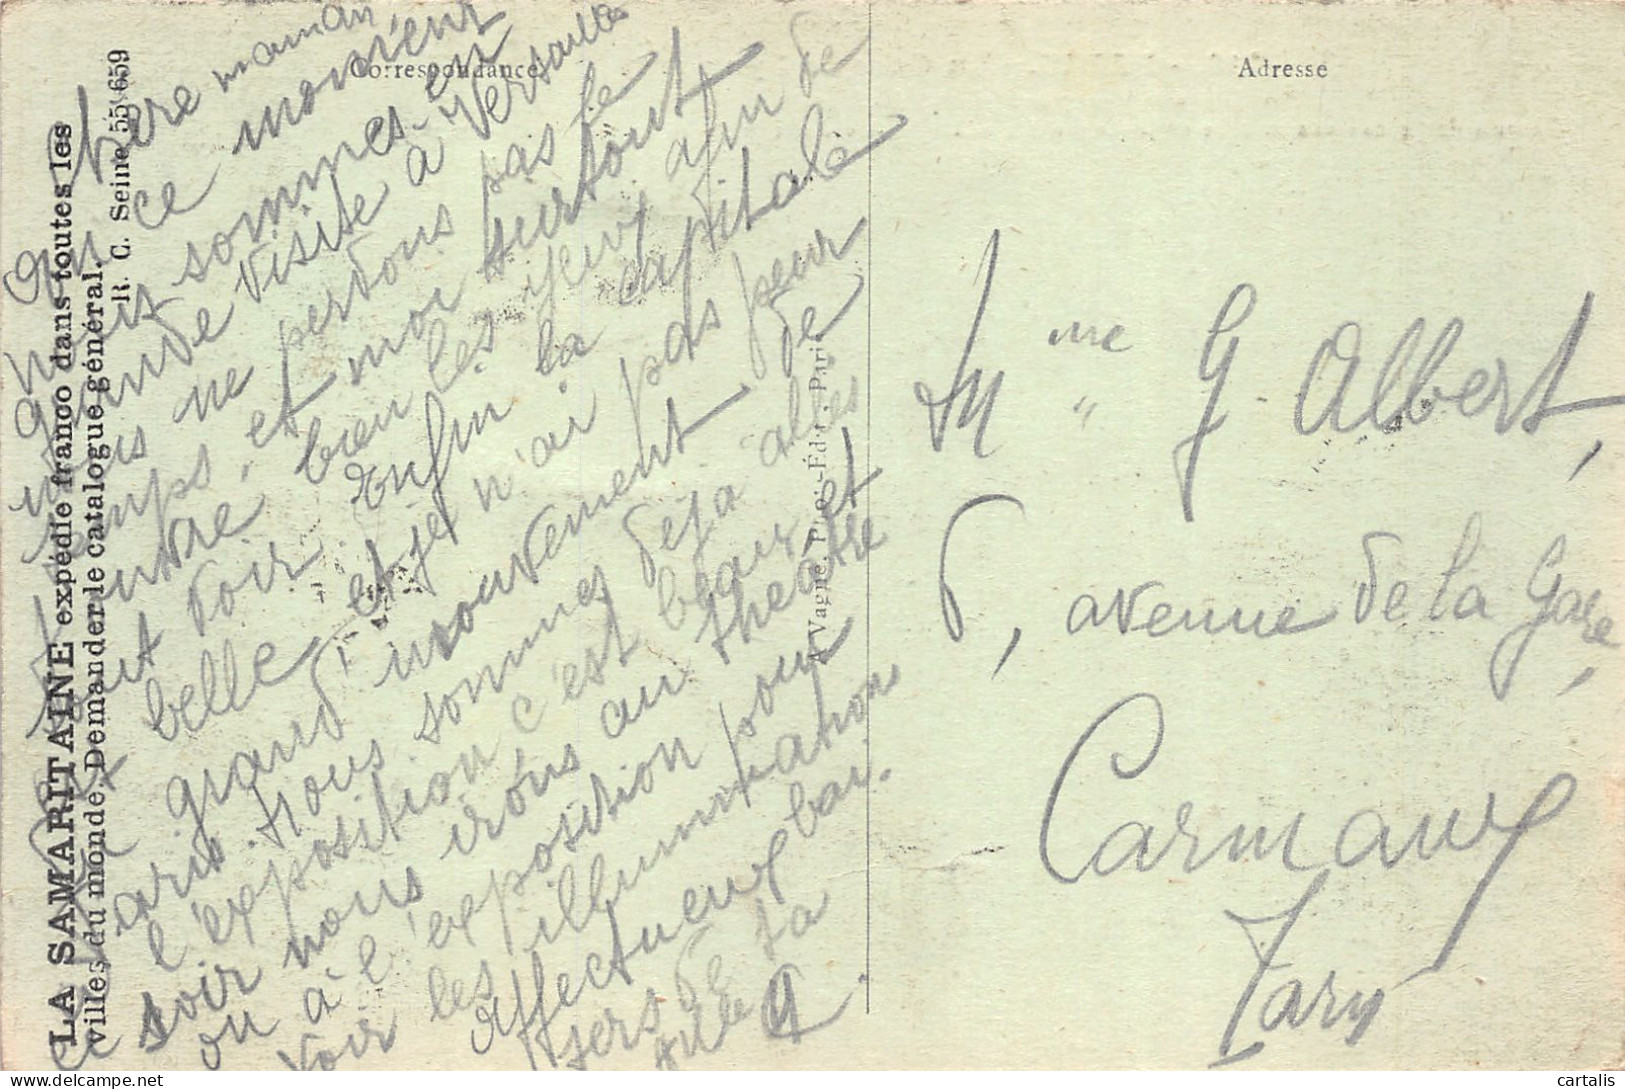 LA SAMARITAINE expédie franco dans toutes les
villes du monde. Demander le catalogue général.
R. C. Seine 55 659
Correspondance
Chère maman
En ce moment
nous sommes en
grande visite à Versailles
nous ne perdons pas le
temps, et moi surtout
ouvre bien les yeux afin de
tout voir. Enfin la capitale
est belle et je n'ai pas peur
du grand mouvement de
Paris. Nous sommes déjà allés
à l'exposition c'est beau, et
ce soir nous irons au théâtre
ou à l'exposition pour
voir les illuminations
Affectueux bai-
sers de ta
A. Vagné, Impr.-Édit., Paris
Adresse
Mme G Albert,
6, avenue de la Gare,
Carmaux
Tarn
cartalis